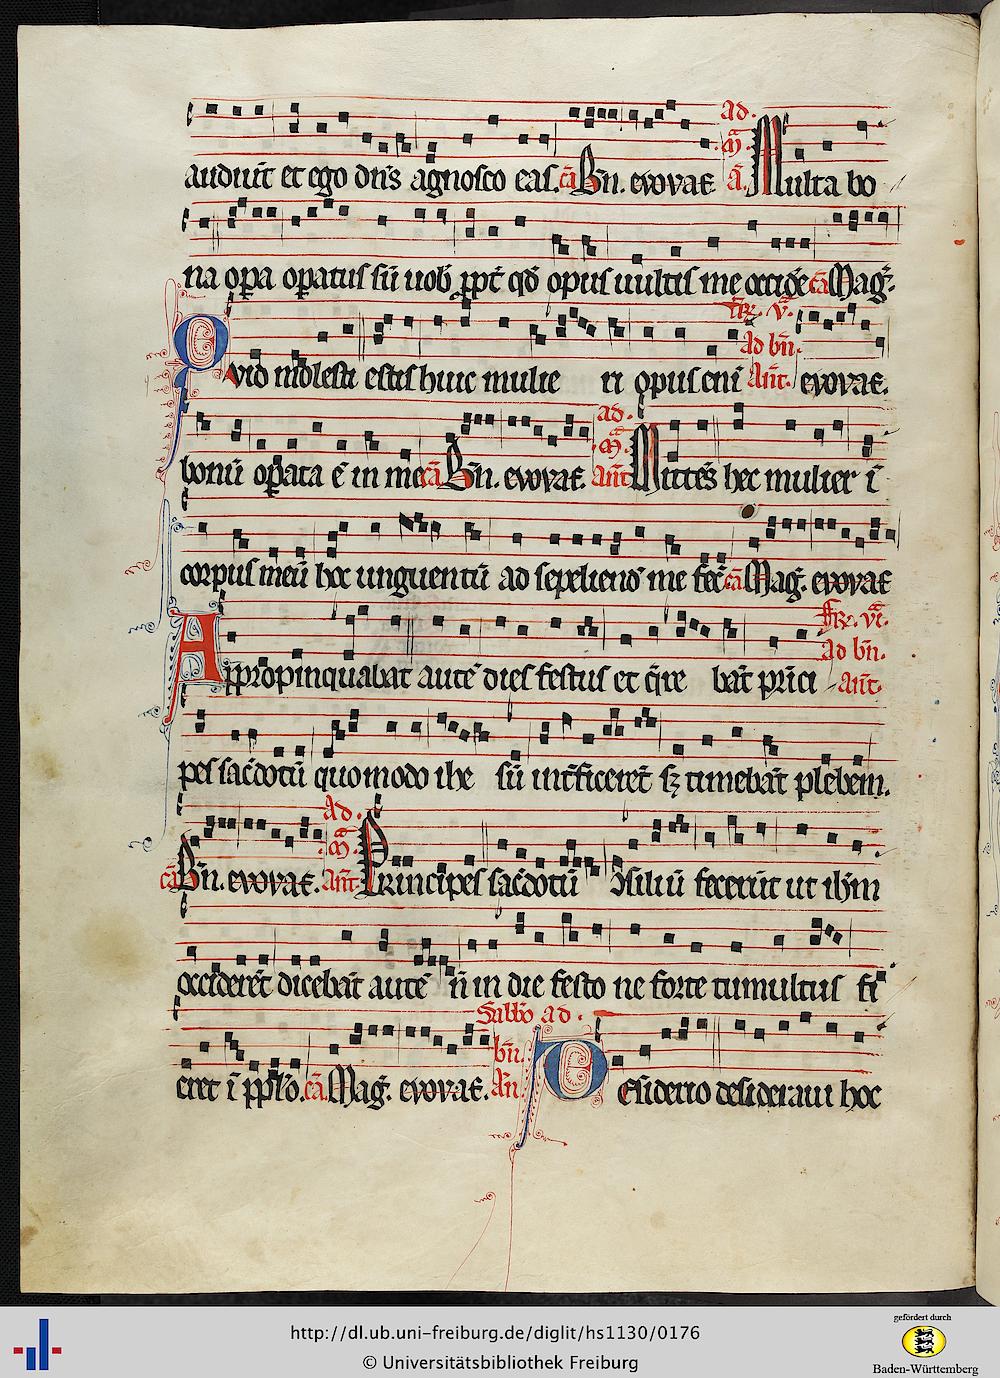 audiūt et ego dn̄s agnosco eas. cā Bn̄. evovae ad m̄a ā Multa bo
na opa opatus sū uob̄ ppt̄ qd̄ opus uultis me occide cā Maḡ.
Quid molesti estis huic mulie ri opus eni fr̄. vᵃ. ad bn̄. Añt. evovae.
bonū opata ē in me cā Bn̄. evovae. ad m̄a Añt Mittēs hec mulier ī
corpus meū hoc unguentū ad sepeliend̄ me fec̄ cā Maḡ. evovae
Appropinquabat autē dies festus et q̄re bāt prīci fr̄. vᵃͤ. ad bn̄. añt.
pes sac̄dotū quomodo ihe sū int̄ficerēt sꝫ timebāt plebem.
cā Bn̄. evovae. ad m̄a Añt. Principes sac̄dotū ꝯsiliū fecerūt ut ih̄m
occiderēt dicebāt autē n̄ in die festo ne forte tumultus fi
eret ī pp̄lo. cā. Maḡ. evovae. Sabbō ad. bn̄. Añ. Desiderio desideraui hoc
http://dl.ub.uni-freiburg.de/diglit/hs1130/0176
© Universitätsbibliothek Freiburg
gefördert durch
Baden-Württemberg